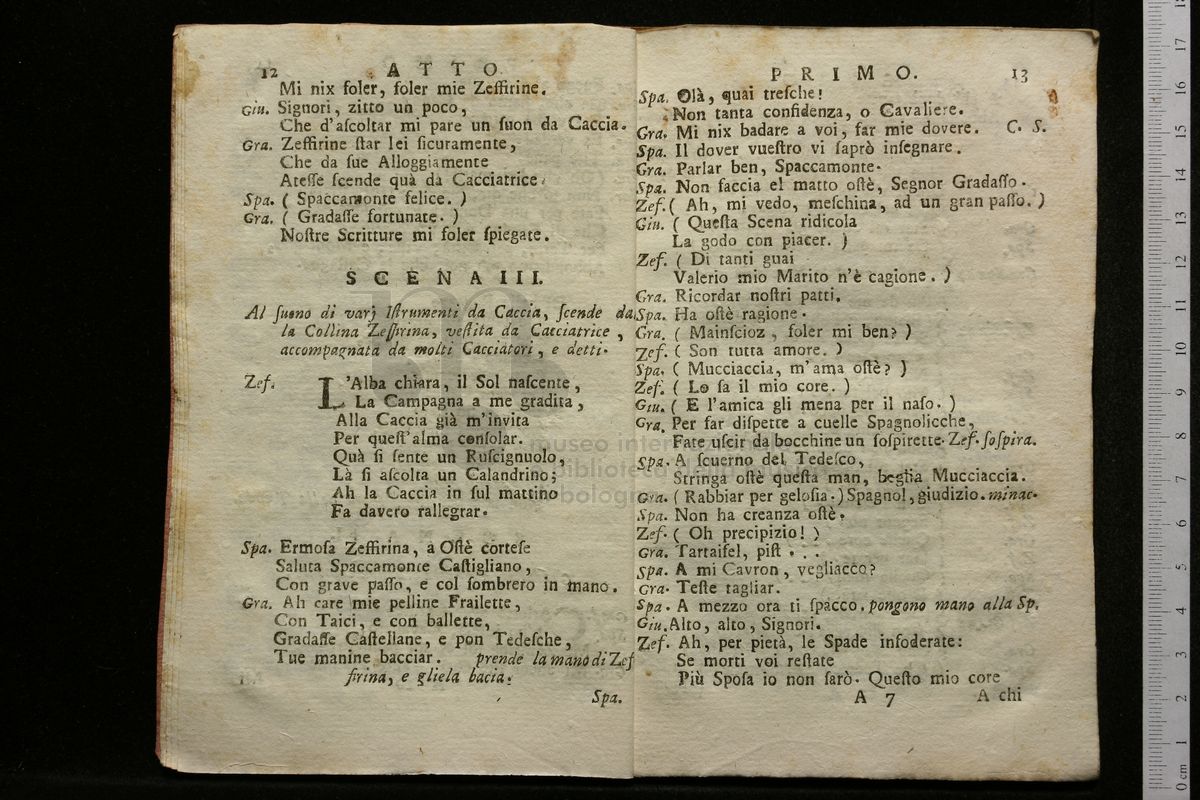 12 ATTO
Mi nix foler, foler mie Zeffirine.
Giu. Signori, zitto un poco,
Che d'aſcoltar mi pare un ſuon da Caccia.
Gra. Zeffirine ſtar lei ſicuramente,
Che da ſue Alloggiamente
Ateſſe ſcende quà da Cacciatrice.
Spa. ( Spaccamonte felice. )
Gra. ( Gradaſſe fortunate. )
Noſtre Scritture mi foler ſpiegate.
SCENA III.
Al ſuono di varj Iſtrumenti da Caccia, ſcende da
la Collina Zeffirina, veſtita da Cacciatrice,
accompagnata da molti Cacciatori, e detti.
Zef. L'Alba chiara, il Sol naſcente,
La Campagna a me gradita,
Alla Caccia già m'invita
Per queſt'alma conſolar.
Quà ſi ſente un Ruſcignuolo,
Là ſi aſcolta un Calandrino;
Ah la Caccia in ſul mattino
Fa davero rallegrar.
Spa. Ermoſa Zeffirina, a Oſtè corteſe
Saluta Spaccamonte Caſtigliano,
Con grave paſſo, e col ſombrero in mano.
Gra. Ah care mie pelline Frailette,
Con Taici, e con ballette,
Gradaſſe Caſtellane, e pon Tedeſche,
Tue manine bacciar. prende la mano di Zef
firina, e gliela bacia.
Spa.
PRIMO. 13
Spa. Olà, quai treſche!
Non tanta confidenza, o Cavaliere.
Gra. Mi nix badare a voi, far mie dovere. C. S.
Spa. Il dover vueſtro vi ſaprò inſegnare.
Gra. Parlar ben, Spaccamonte.
Spa. Non faccia el matto oſtè, Segnor Gradaſſo.
Zef. ( Ah, mi vedo, meſchina, ad un gran paſſo. )
Giu. ( Queſta Scena ridicola
La godo con piacer. )
Zef. ( Di tanti guai
Valerio mio Marito n'è cagione. )
Gra. Ricordar noſtri patti.
Spa. Ha oſtè ragione.
Gra. ( Mainſcioz, foler mi ben? )
Zef. ( Son tutta amore. )
Spa. ( Mucciaccia, m'ama oſtè? )
Zef. ( Lo ſa il mio core. )
Giu. ( E l'amica gli mena per il naſo. )
Gra. Per far diſpette a cuelle Spagnolicche,
Fate uſcir da bocchine un ſoſpirette. Zef. ſoſpira.
Spa. A ſcuerno del Tedeſco,
Stringa oſtè queſta man, beglia Mucciaccia.
Gra. ( Rabbiar per geloſia. ) Spagnol, giudizio. minac.
Spa. Non ha creanza oſtè.
Zef. ( Oh precipizio! )
Gra. Tartaifel, piſt . . .
Spa. A mi Cavron, vegliacco?
Gra. Teſte tagliar.
Spa. A mezzo ora ti ſpacco. pongono mano alla Sp.
Giu. Alto, alto, Signori.
Zef. Ah, per pietà, le Spade infoderate:
Se morti voi reſtate
Più Spoſa io non ſarò. Queſto mio core
A 7 A chi